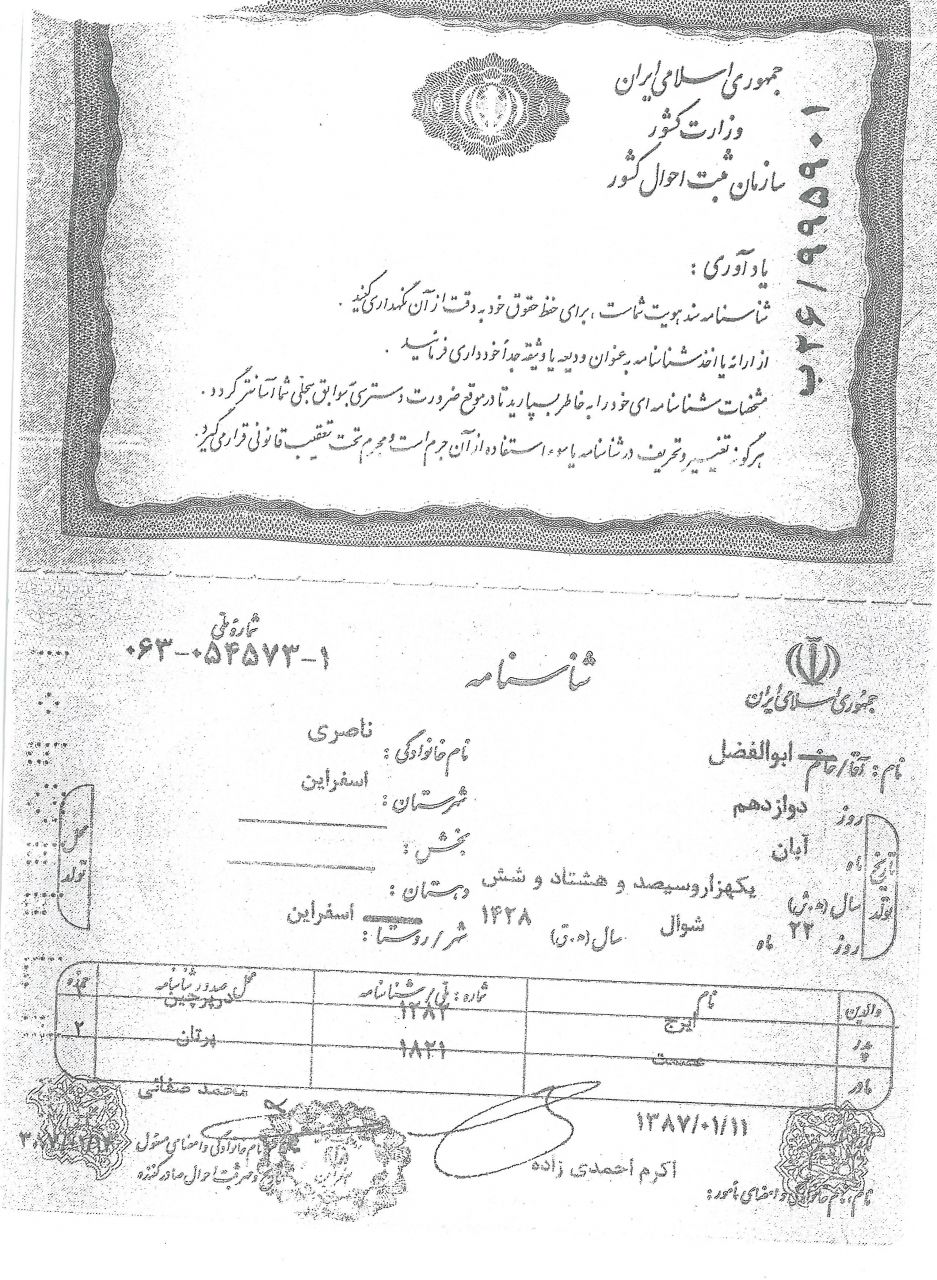 جمهوری اسلامی ایران
وزارت کشور
سازمان ثبت احوال کشور
ب۲۶/۹۹۵۹۰۱
یادآوری :
شناسنامه سند هویت شماست ، برای حفظ حقوق خود به دقت از آن نگهداری کنید .
از ارائه یا اخذ شناسنامه به عنوان ودیعه یا وثیقه جداً خودداری فرمائید .
مشخصات شناسنامه ای خود را به خاطر بسپارید تا در موقع ضرورت دسترسی به سوابق سجلی شما آسانتر گردد .
هرگونه تغییر و تحریف در شناسنامه یا سوء استفاده از آن جرم است و مجرم تحت تعقیب قانونی قرار می گیرد.
شماره ملی
۰۶۳-۰۵۴۵۷۳-۱
شناسنامه
جمهوری اسلامی ایران
نام : آقا/خانم ابوالفضل
نام خانوادگی : ناصری
تاریخ تولد
روز دوازدهم
ماه آبان
سال (ه.ش) یکهزاروسیصد و هشتاد و شش
روز ۲۲ ماه شوال سال (ه.ق) ۱۴۲۸
محل تولد
شهرستان : اسفراین
بخش :
دهستان :
شهر/روستا : اسفراین
والدین نام شماره : ملی/شناسنامه محل صدور شناسنامه حوزه
پدر ایرج ۱۲۸۲
مادر عصمت ۱۸۲۱ پرتان ۲
محمد صفائی
۱۳۸۷/۰۱/۱۱
اکرم احمدی زاده
نام، نام خانوادگی و امضای مأمور:
نام خانوادگی و امضای مسئول
و مهر ثبت احوال صادرکننده